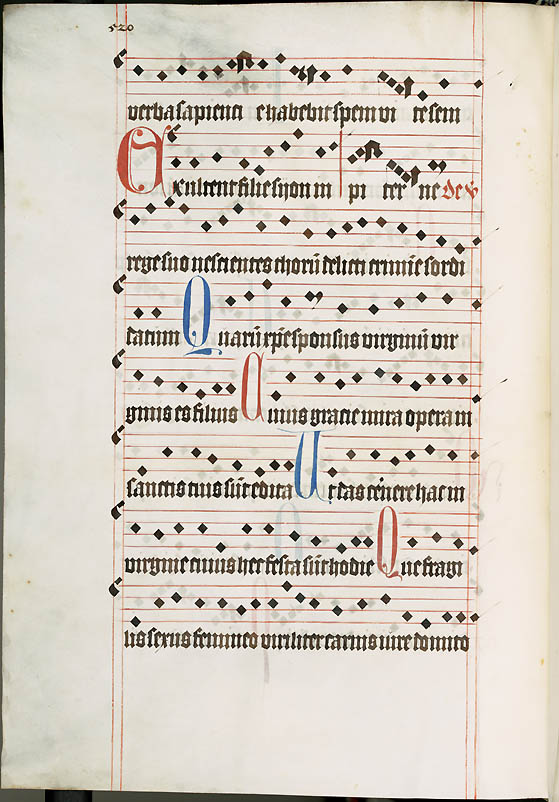 520
verba sapienti e habebit spem vi te sem
Exultent filie syon in pi ter ne de v
rege suo nescientes thorū delicti crimīe sordi
datum Quarū xp̄e sponsus virginū vir
ginis es filius Cuius gracie mira opera in
sanctis tuis sūt edita Etas tenere hac in
virgīe cuius hec festa sūt hodie Que fragi
lis sexus femineo viriliter carnis iure domito